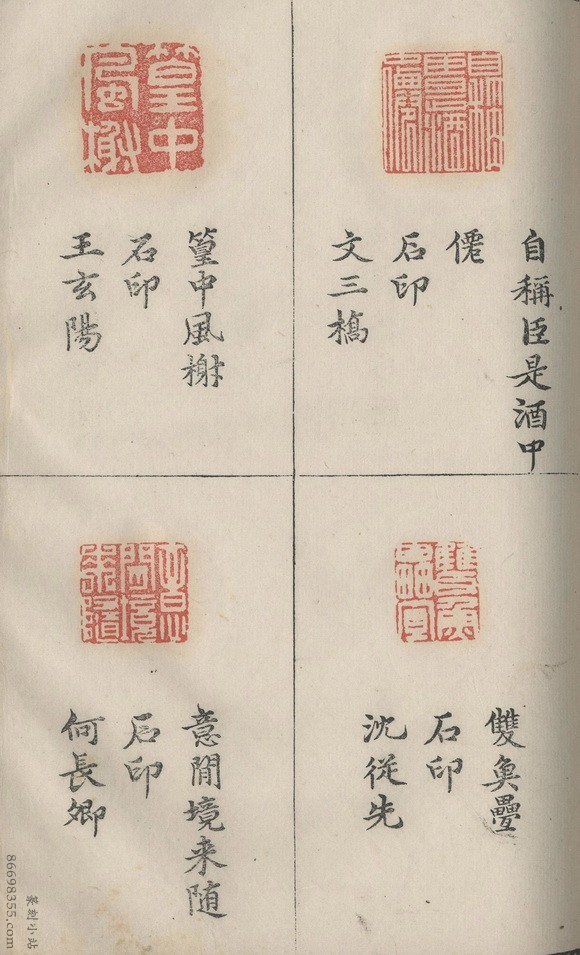 篁中
風榭
自稱臣是酒中
僊
石印
文三橋
篁中風榭
石印
王玄陽
意
閒境
来隨
雙魚疊
石印
沈從先
意閒境来随
石印
何長卿
篆刻小站
86698355.com